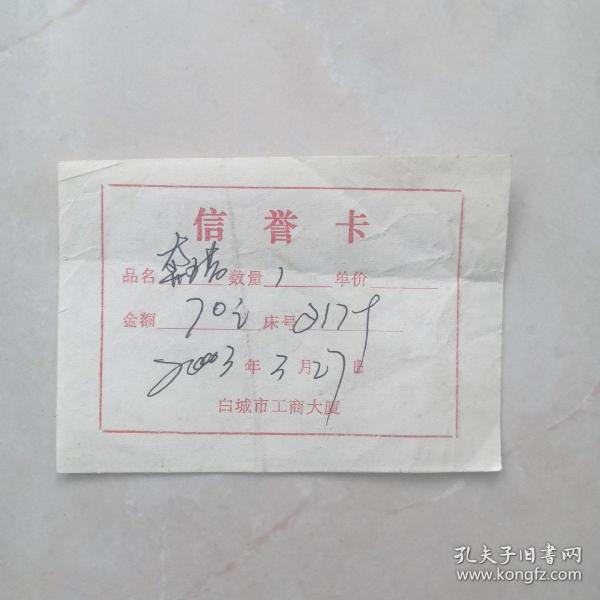 信誉卡
品名 数量 1 单价
金额 70元 床号 3179
2003年3月27日
白城市工商大厦
孔夫子旧书网
www.kongfz.com